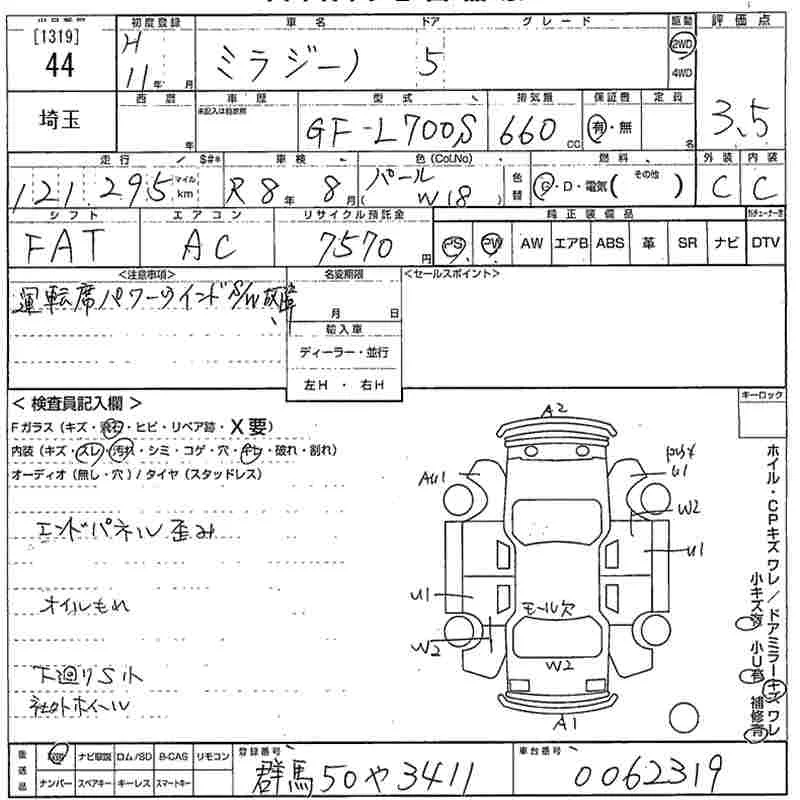 [1319]
44
埼玉
初度登録
H
11年 月
車名 ドア グレード
ミラジーノ 5
駆動
2WD
4WD
評価点
3.5
西暦
年
車歴
未記入は自家用
型式
GF-L700S
排気量
660 CC
保証書
有・無
定員
名
走行
$#*
121,295 マイル km
車検
R8年 8月
色(Col.No)
パール
( W18 )
色替
燃料
G・D・電気( その他 )
外装 内装
C C
シフト
FAT
エアコン
AC
リサイクル預託金
7570円
純正装備品
PS PW AW エアB ABS 革 SR ナビ DTV
<注意事項>
運転席パワーウインドS/W故障
名変期限
月 日
輸入車
ディーラー・並行
左H ・ 右H
<セールスポイント>
<検査員記入欄>
Fガラス(キズ・飛石・ヒビ・リペア跡・X要)
内装(キズ・スレ・汚れ・シミ・コゲ・穴・・破れ・割れ)
オーディオ(無し・穴)/タイヤ(スタッドレス)
エンドパネル歪み
オイルもれ
下廻りSh
社外ホイール
キーロック
A2
AU1
U1
W2
U1
U1
W2
モール欠
W2
A1
ホイル・CPキズ ワレ/ドアミラーキズ ワレ
小キズ有 小U有 補修有
後送品
取説 ナビ取説 ロム/SD B-CAS リモコン
ナンバー スペアキー キーレス スマートキー
登録番号
群馬50や3411
車台番号
0062319